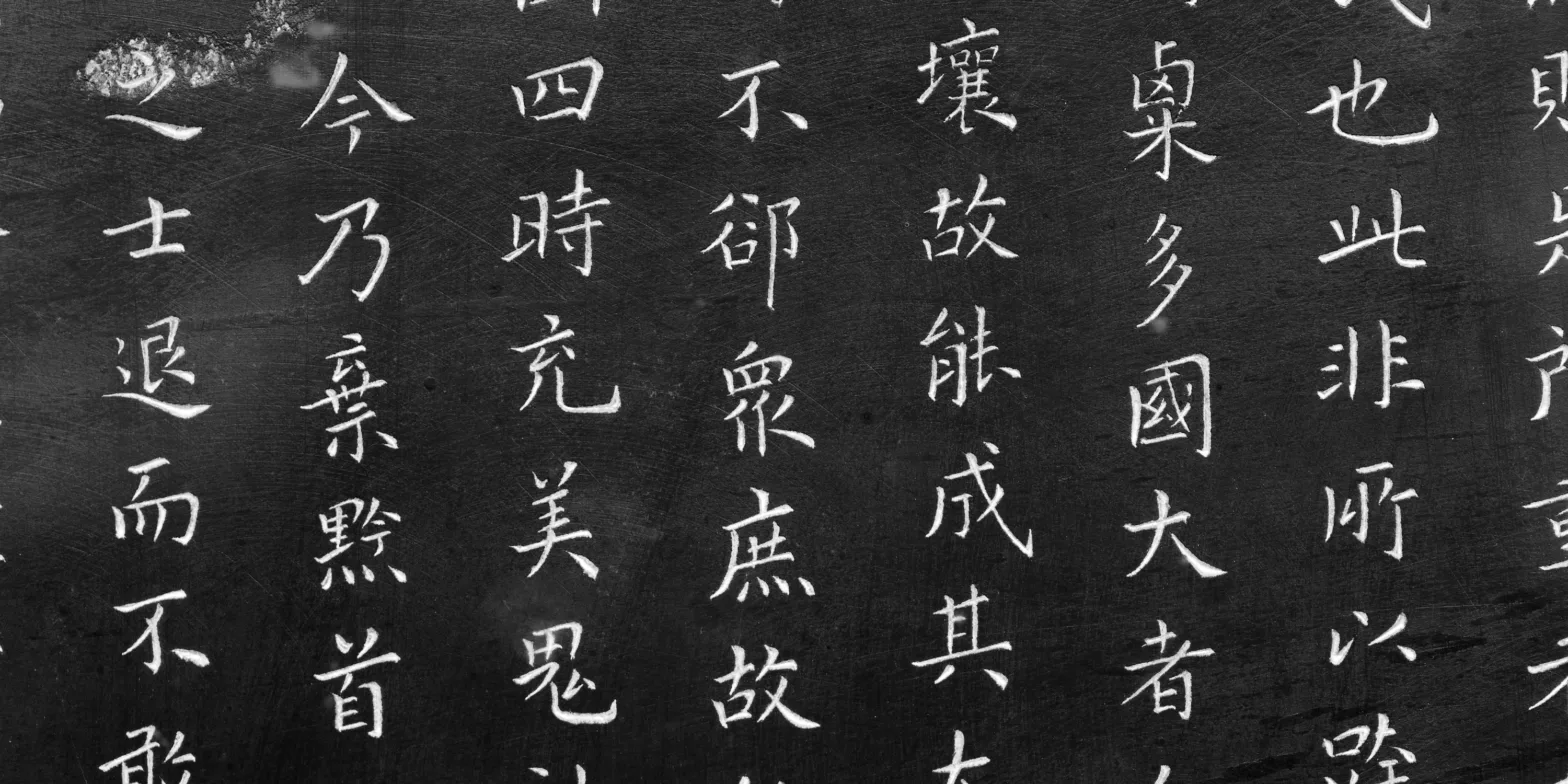 也此非所以跨
粟多國大者
壤故能成其大
不卻眾庶故
四時充美鬼
今乃棄黔首
之士退而不敢